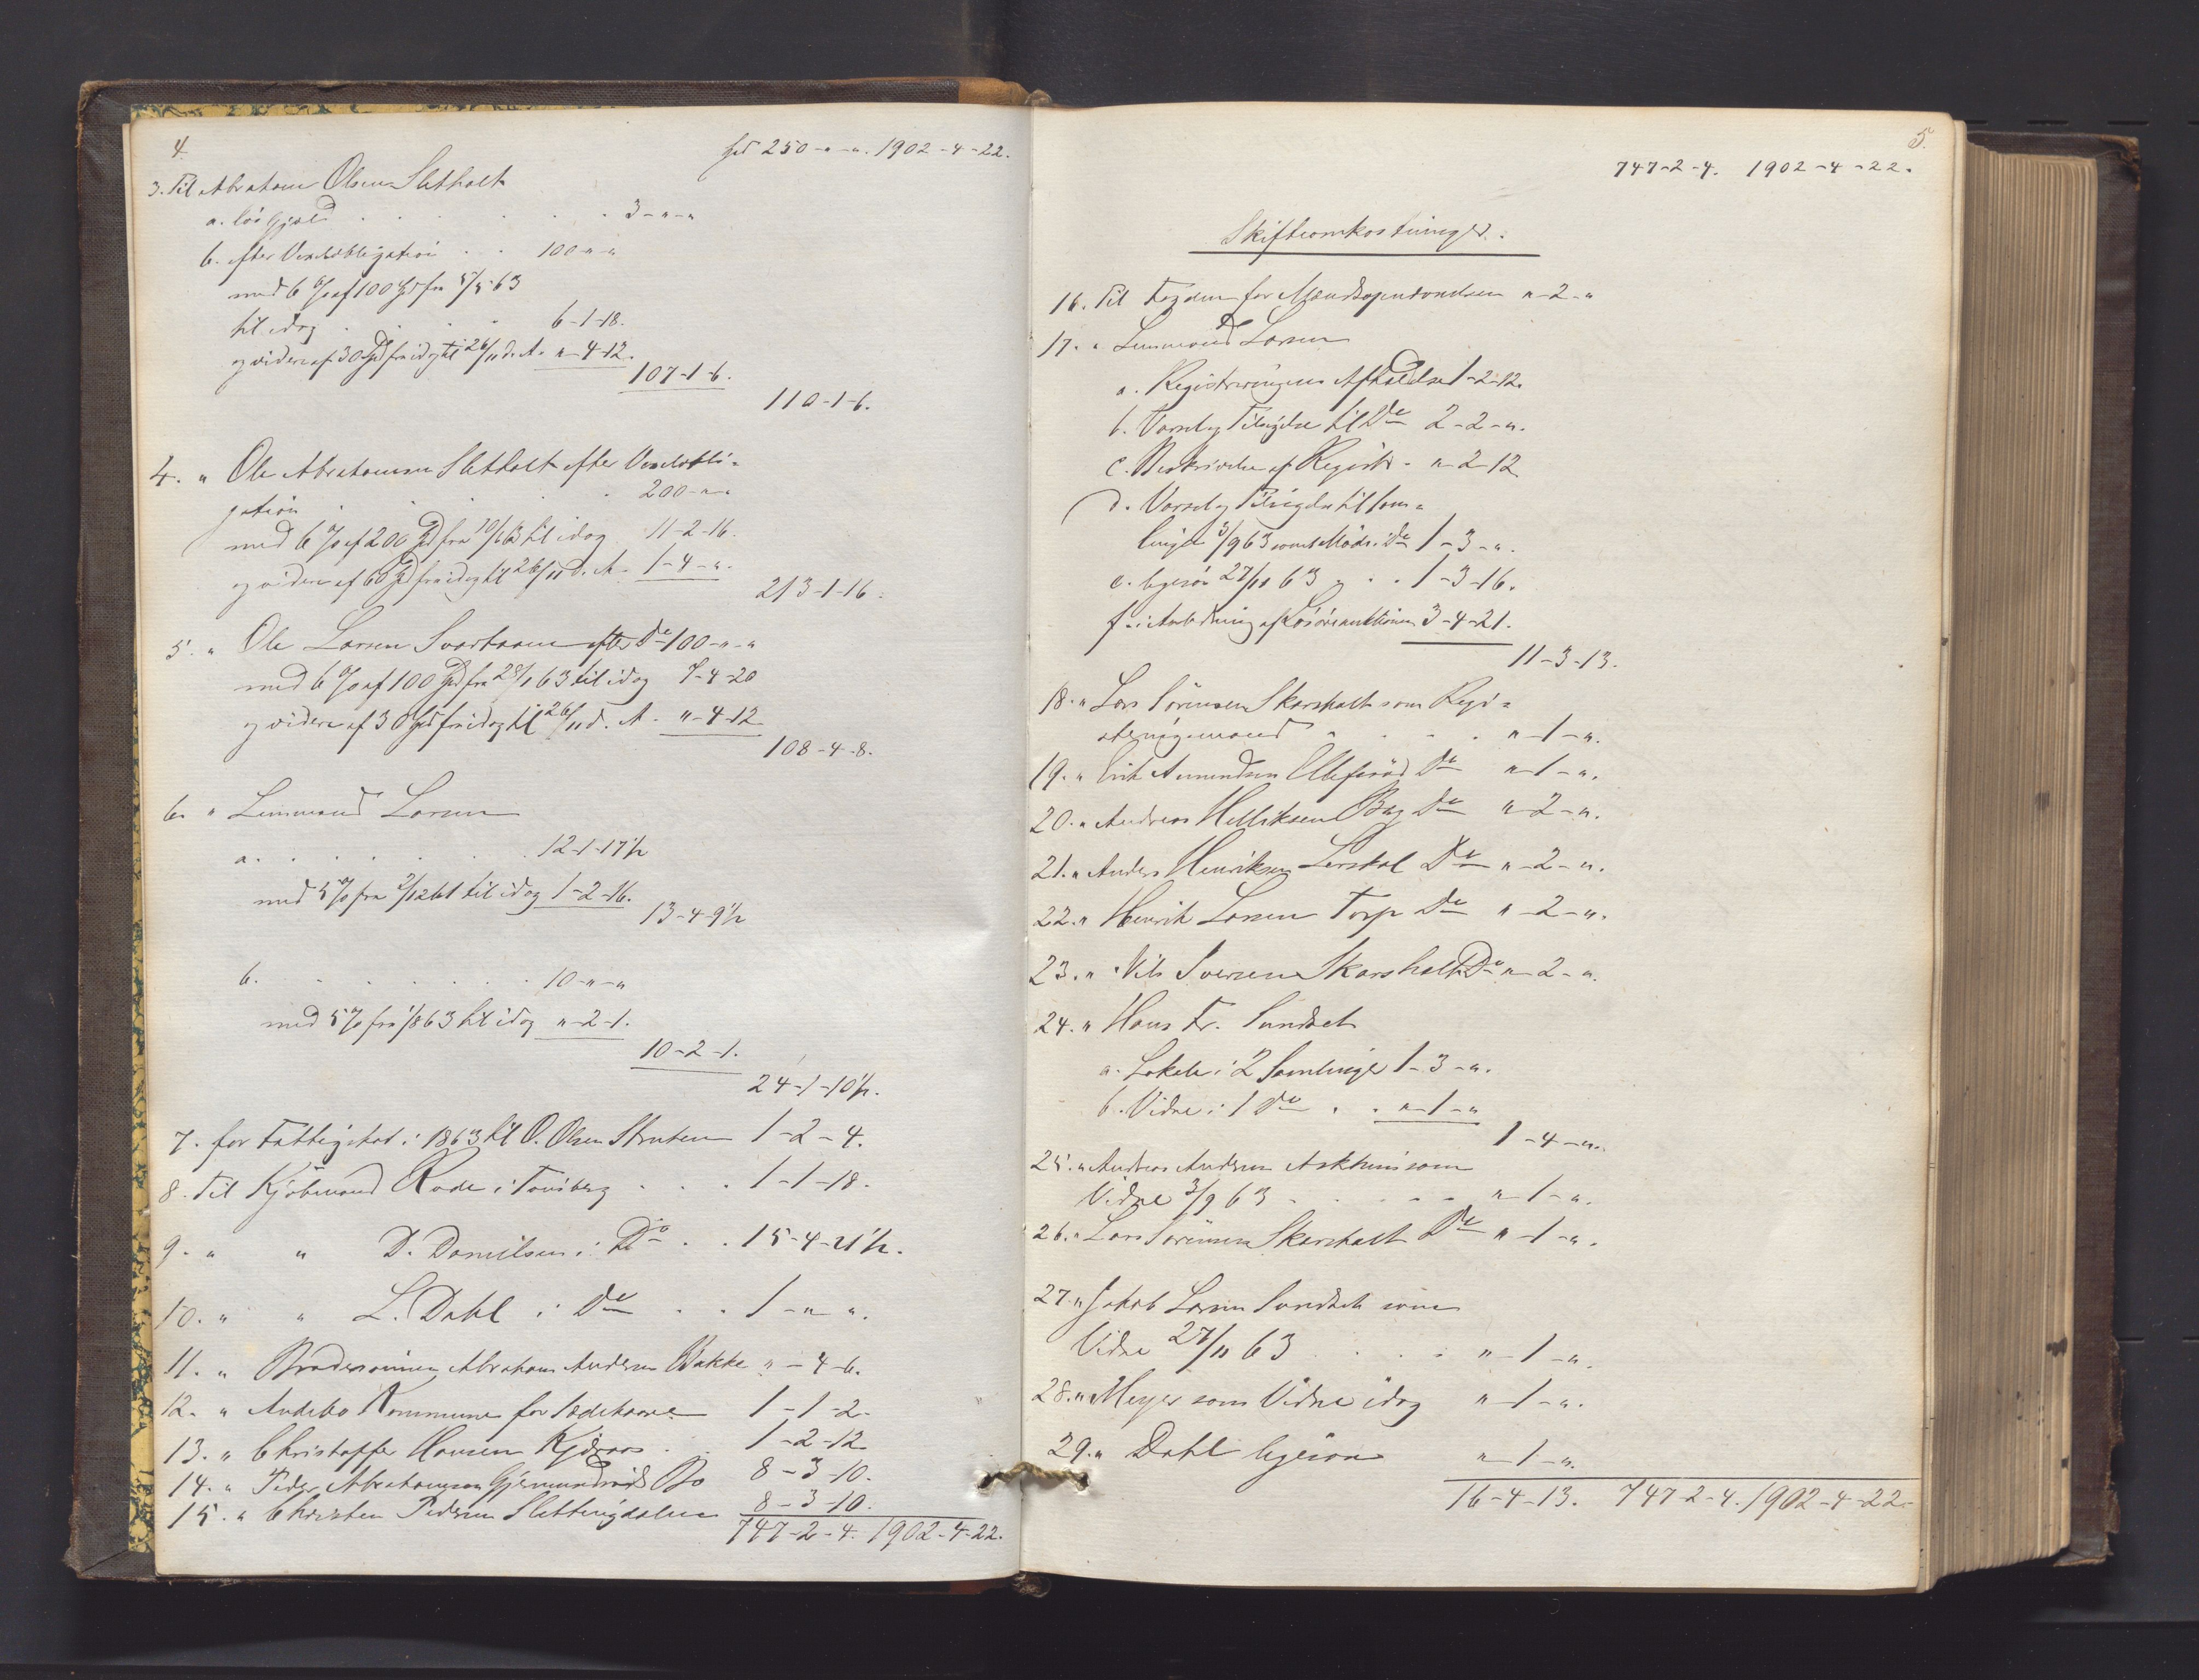 4.
Spd 250 - " - ". 1902 - 4 - 22.
3. Til Abraham Olsen Sletholt
a. løs Gjæld . . . . . . 3 - " - "
b. efter Vexelobligation . . 100 - " - "
med 6 % af 100 Spd fra 5/5 63
til idag . . . . 6-1-18.
og videre af 30 Spd fra idag til 26/11 d. A. " - 4-12.
107-1-6.
110-1-6.
4. " Ole Abrahamsen Sletholt efter Vexelobli=
gation . . . . . 200 - " - "
med 6 % af 200 Spd fra 10/6 63 til idag 11-2-16.
og videre af 60 Spd fra idag til 26/11 d. A. 1-4-".
213-1-16.
5. " Ole Larsen Svartaaen efter Do 100 - " - "
med 6 % af 100 Spd fra 28/1 63 til idag 7-4-20
og videre af 30 Spd fra idag til 26/11 d. A. " - 4-12
108-4-8.
6. " Lensmand Larsen
a. . . . . . . 12-1-17½
med 5 % fra 2/12 61 til idag 1-2-16.
13-4-9½
b. . . . . . . 10 - " - "
med 5 % fra 1/8 63 til idag " - 2-1.
10-2-1.
24-1-10½.
7. for Fattigskat i 1863 til O. Olsen 1-2-4.
8. Til Kjøbmand Rode i Tønsberg . . . 1-1-18.
9. " " D. Danielsen i Do . . 15-4-21½.
10. " " L. Dahl i Do . . 1 - " - ".
11. " Brodersønnen Abraham Andersen Bakke " - 4-6.
12. " Andebo Kommune for Sædekorn 1-1-2.
13. " Christoffer Hansen Kjøraas . . 1-2-12.
14. " Peder Abrahamsen Gjermundrød Bo 8-3-10.
15. " Christen Pedersen Slettingdalen 8-3-10.
747-2-4. 1902-4-22.
5.
747-2-4. 1902-4-22.
Skifteomkostninger.
16. Til Fogden for Mandsopnævnelsen " - 2 - "
17. " Lensmand Larsen
a. Registreringens Afholdelse 1-2-12.
b. Varsel og Tilsigelse til Do 2-2-".
c. Beskrivelse af Registr. " - 2-12
d. Varsel og Tilsigelse til Sam=
linger 3/9 63 samt Møde i Do 1-3-".
e. ligesaa 27/11 63 . . 1-3-16.
f. i Anledning af Løsøreauktionen 3-4-21.
11-3-13.
18. " Lars Sørensen Skarsholt som Regi=
streringsmand . . . . " - 1 - ".
19. " Erik Amundsen Ellefsrød Do " - 1 - ".
20. " Andreas Helliksen Berg Do " - 2 - ".
21. " Anders Henriksen Lerskal Do " - 2 - ".
22. " Henrik Larsen Torp Do " - 2 - ".
23. " Nils Iversen Skarsholt Do " - 2 - ".
24. " Hans Fr. Sundset
a. Lokale i 2 Samlinger 1-3-".
b. Vidne i 1 Do . . " - 1 - "
1-4-".
25. " Andreas Andersen Askheim som
Vidne 3/9 63 . . . . . " - 1 - ".
26. " Lars Sørensen Skarsholt Do " - 1 - ".
27. " Jakob Larsen Sundset som
Vidne 27/11 63 . . . . " - 1 - ".
28. " Meyer som Vidne idag " - 1 - ".
29. " Dahl ligesaa " - 1 - ".
16-4-13. 747-2-4. 1902-4-22.